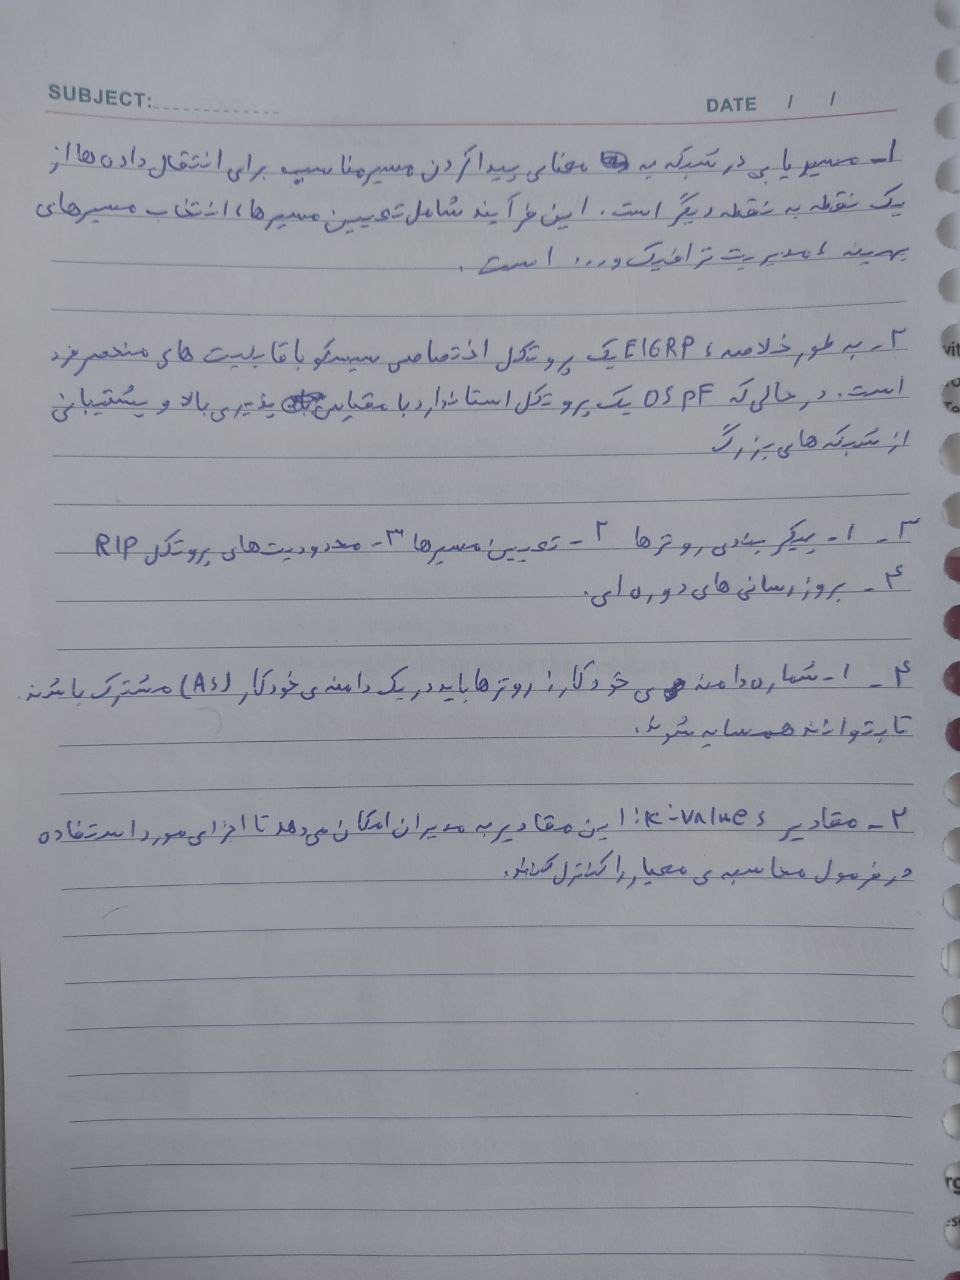 SUBJECT:
DATE / /
۱- مسیریابی در شبکه به معنای پیدا کردن مسیر مناسب برای انتقال داده ها از
یک نقطه به نقطه دیگر است. این فرآیند شامل تعیین مسیرها، انتخاب مسیرهای
بهینه، مدیریت ترافیک و... است.
۲- به طور خلاصه، EIGRP یک پروتکل اختصاصی سیسکو با قابلیت های منحصر فرد
است. در حالی که OSPF یک پروتکل استاندارد با مقیاس پذیری بالا و پشتیبانی
از شبکه های بزرگ
۳- ۱- پیکربندی روترها ۲- تعیین مسیرها ۳- محدودیت های پروتکل RIP
۴- بروزرسانی های دوره ای.
۴- ۱- شماره دامنه ی خودکار: روترها باید در یک دامنه ی خودکار (AS) مشترک باشند.
تا بتوانند همسایه شوند.
۲- مقادیر k-values: این مقادیر به مدیران امکان می دهد تا اجزای مورد استفاده
در فرمول محاسبه ی معیار را کنترل کنند.
vit
rg